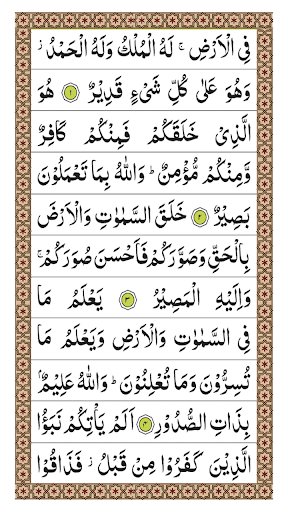 فِی الْاَرْضِ ۚ لَهُ الْمُلْكُ وَلَهُ الْحَمْدُ ؗ
وَهُوَ عَلٰی كُلِّ شَیْءٍ قَدِیْرٌ ۝۱ هُوَ
الَّذِیْ خَلَقَكُمْ فَمِنْكُمْ كَافِرٌ
وَّمِنْكُمْ مُّؤْمِنٌ ؕ وَاللّٰهُ بِمَا تَعْمَلُوْنَ
بَصِیْرٌ ۝۲ خَلَقَ السَّمٰوٰتِ وَالْاَرْضَ
بِالْحَقِّ وَصَوَّرَكُمْ فَاَحْسَنَ صُوَرَكُمْ ۚ
وَاِلَیْهِ الْمَصِیْرُ ۝۳ یَعْلَمُ مَا
فِی السَّمٰوٰتِ وَالْاَرْضِ وَیَعْلَمُ مَا
تُسِرُّوْنَ وَمَا تُعْلِنُوْنَ ؕ وَاللّٰهُ عَلِیْمٌۢ
بِذَاتِ الصُّدُوْرِ ۝۴ اَلَمْ یَاْتِكُمْ نَبَؤُا
الَّذِیْنَ كَفَرُوْا مِنْ قَبْلُ ؗ فَذَاقُوْا